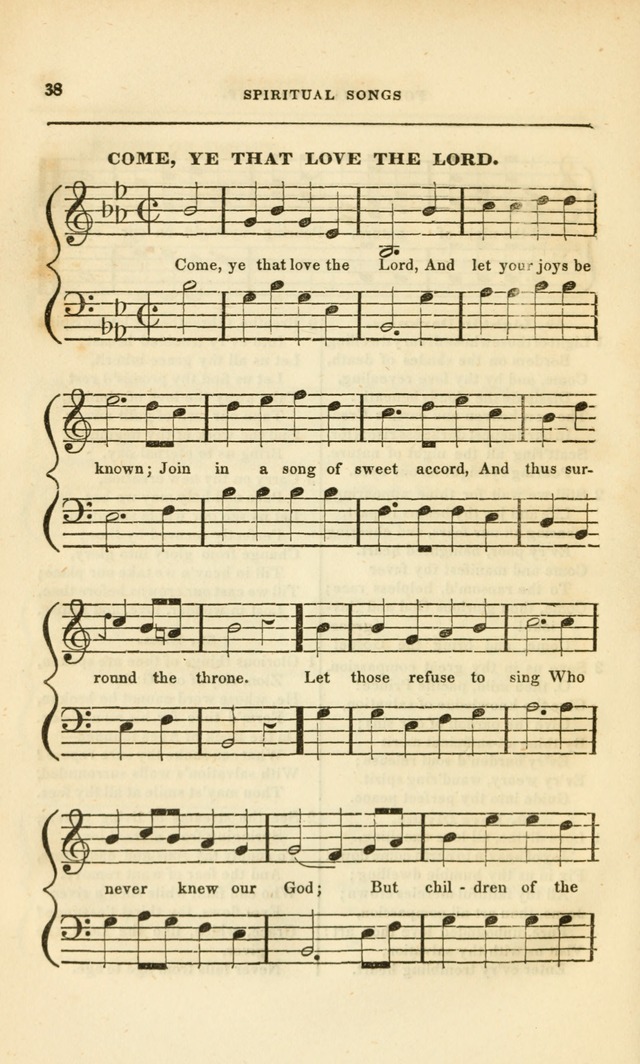 38
SPIRITUAL SONGS
COME, YE THAT LOVE THE LORD.
Come, ye that love the Lord, And let your joys be
known; Join in a song of sweet accord, And thus sur-
round the throne. Let those refuse to sing Who
never knew our God; But chil - dren of the